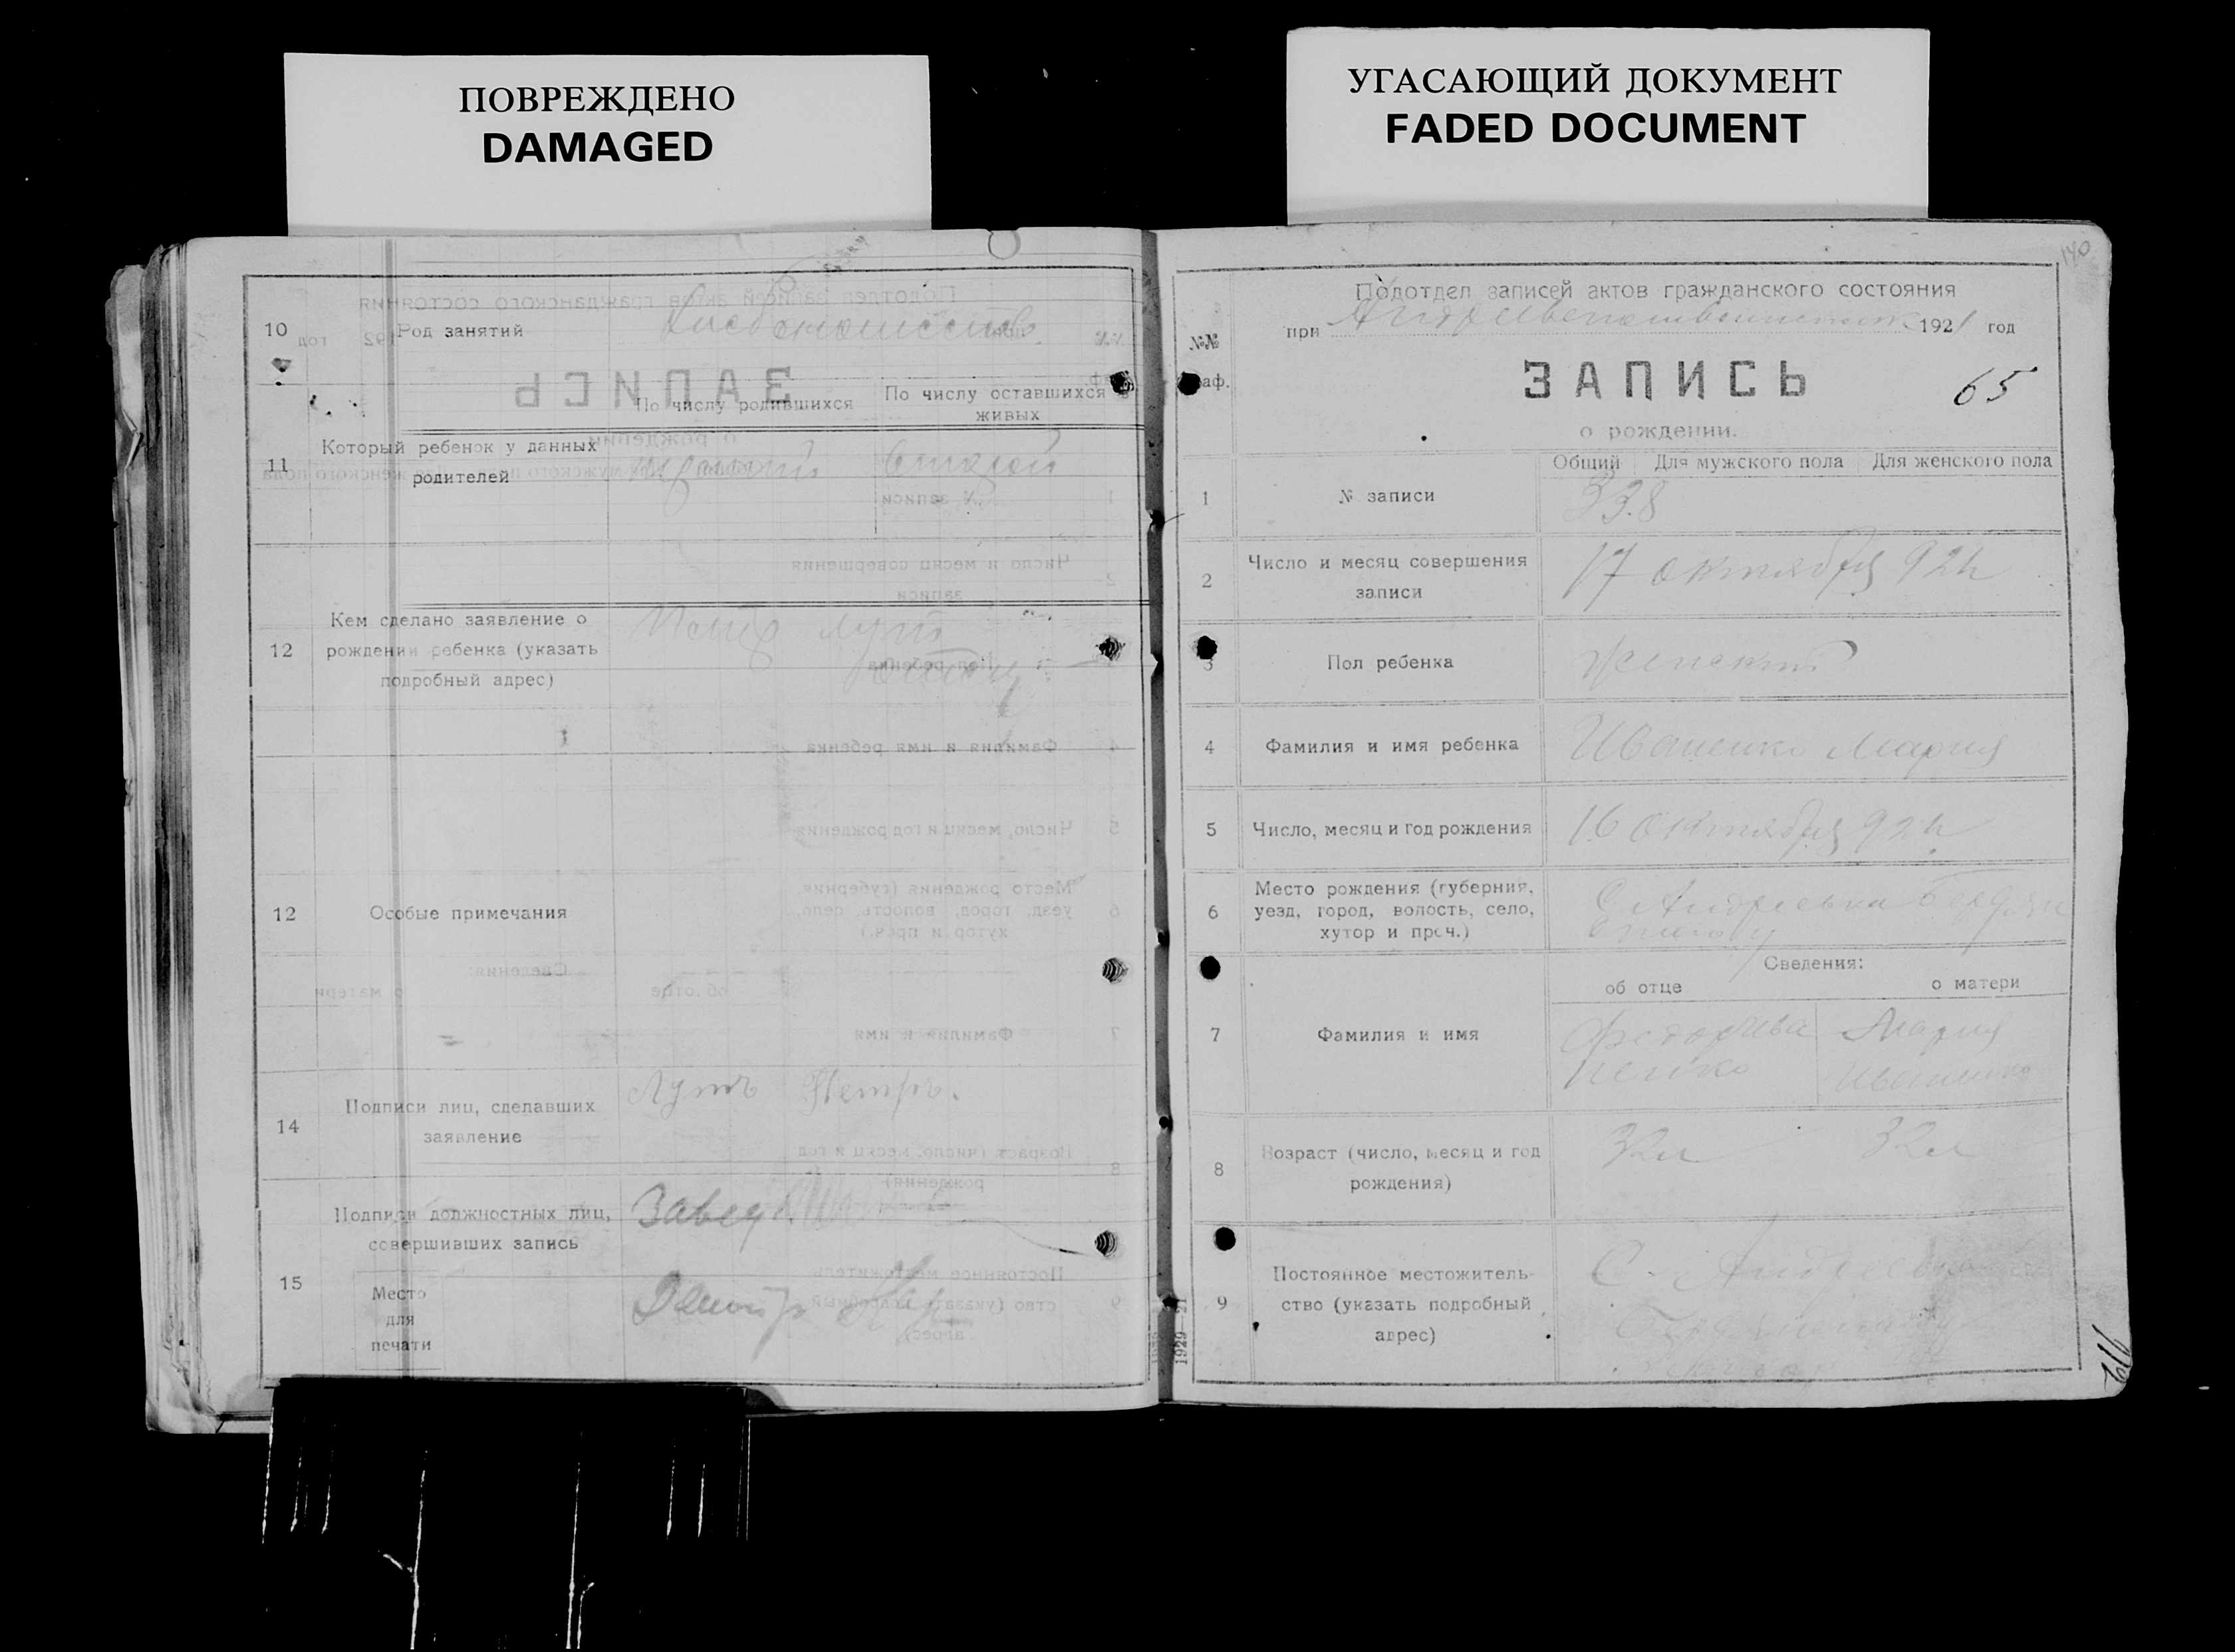 ПОВРЕЖДЕНО
DAMAGED
УГАСАЮЩИЙ ДОКУМЕНТ
FADED DOCUMENT
10 Род занятий
По числу родившихся
По числу оставшихся живых
11 Который ребенок у данных родителей
Второй
12 Кем сделано заявление о рождении ребенка (указать подробный адрес)
Петр Лут
12 Особые примечания
14 Подписи лиц, сделавших заявление
Лутъ Петръ.
15 Подписи должностных лиц, совершивших запись
Завед
Место
для
печати
140
Подотдел записей актов гражданского состояния
при 1921 год
№№
граф.
ЗАПИСЬ
65
о рождении.
Общий Для мужского пола Для женского пола
1 № записи 338
2 Число и месяц совершения записи
17 октября 921
3 Пол ребенка Женский
4 Фамилия и имя ребенка Иваненко Мария
5 Число, месяц и год рождения 16 октября 921
6 Место рождения (губерния, уезд, город, волость, село, хутор и проч.)
С Андреевка
Сведения:
об отце о матери
7 Фамилия и имя
Федор Ива
ненко
Мария
Иваненко
8 Возраст (число, месяц и год рождения)
32 л 32 л
9 Постоянное местожительство (указать подробный адрес)
С. Андреевка
1929—21